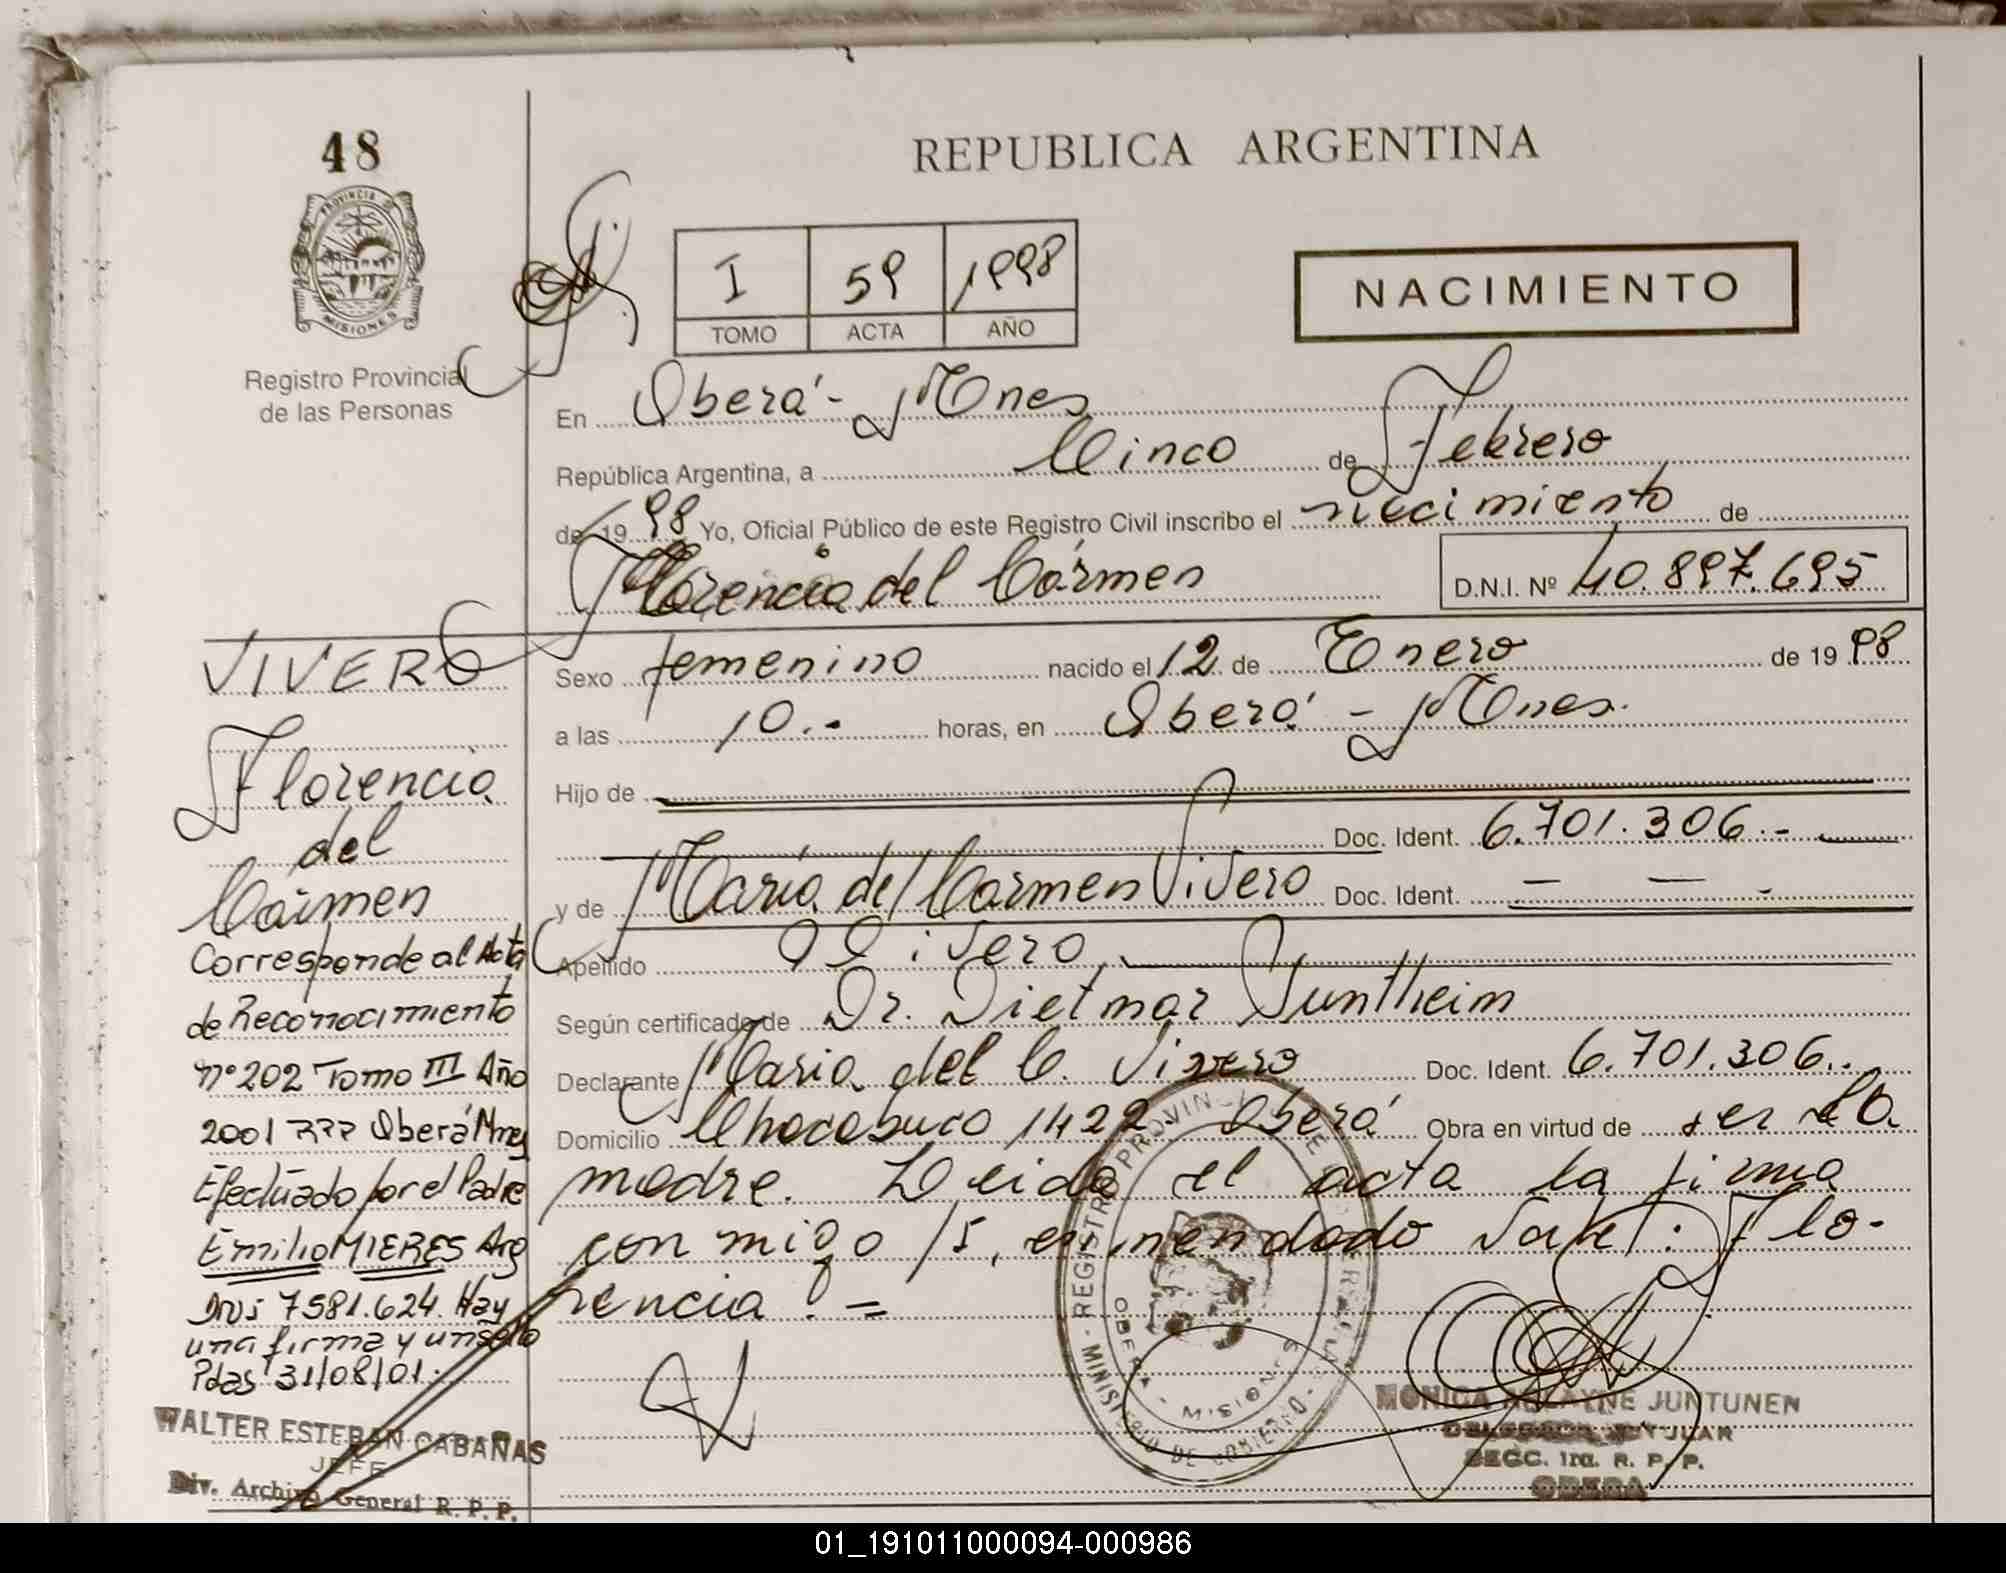 48
PROVINCIA DE
MISIONES
Registro Provincial
de las Personas
REPUBLICA ARGENTINA
I 59 1998
TOMO ACTA AÑO
NACIMIENTO
En Oberá - Mnes
República Argentina, a Cinco de Febrero
de 19 98 Yo, Oficial Público de este Registro Civil inscribo el nacimiento de
Florencia del Cármen
D.N.I. Nº 40.897.695
Sexo femenino nacido el 12 de Enero de 19 98
a las 10.- horas, en Oberá - Mnes.
Hijo de
Doc. Ident. 6.701.306.-
y de María del Carmen Vivero Doc. Ident. — — -
Apellido Vivero
Según certificado de Dr. Dietmar Suntheim
Declarante María del C. Vivero Doc. Ident. 6.701.306..
Domicilio Chacabuco 1422 Oberá Obra en virtud de ser la
madre. Leida el acta la firma
conmigo /5, enmendado Vale: Flo-
rencia. =
VIVERO
Florencia
del
Cármen
Corresponde al Acta
de Reconocimiento
nº 202 Tomo III Año
2001 Oberá Mnes
Efectuado por el Padre
Emilio MIERES Arg
DNI 7581.624. Hay
una firma y un sello
Pdas 31/08/01.
WALTER ESTEBAN CABAÑAS
JEFE
Div. Archivo General R. P. P.
MINISTERIO DE GOBIERNO - REGISTRO PROVINCIAL DE
OBERA - MISIONES
MONICA JUNTUNEN
TITULAR
SECC. 1ra. R. P. P.
OBERA
01_191011000094-000986